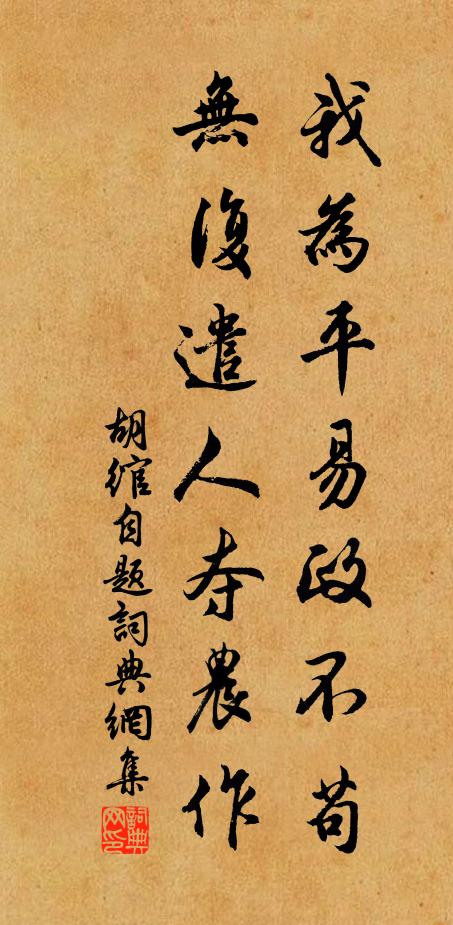 我為平易政不苟
無復遣人夺農作
胡綰自題詞典網集
詞典网印